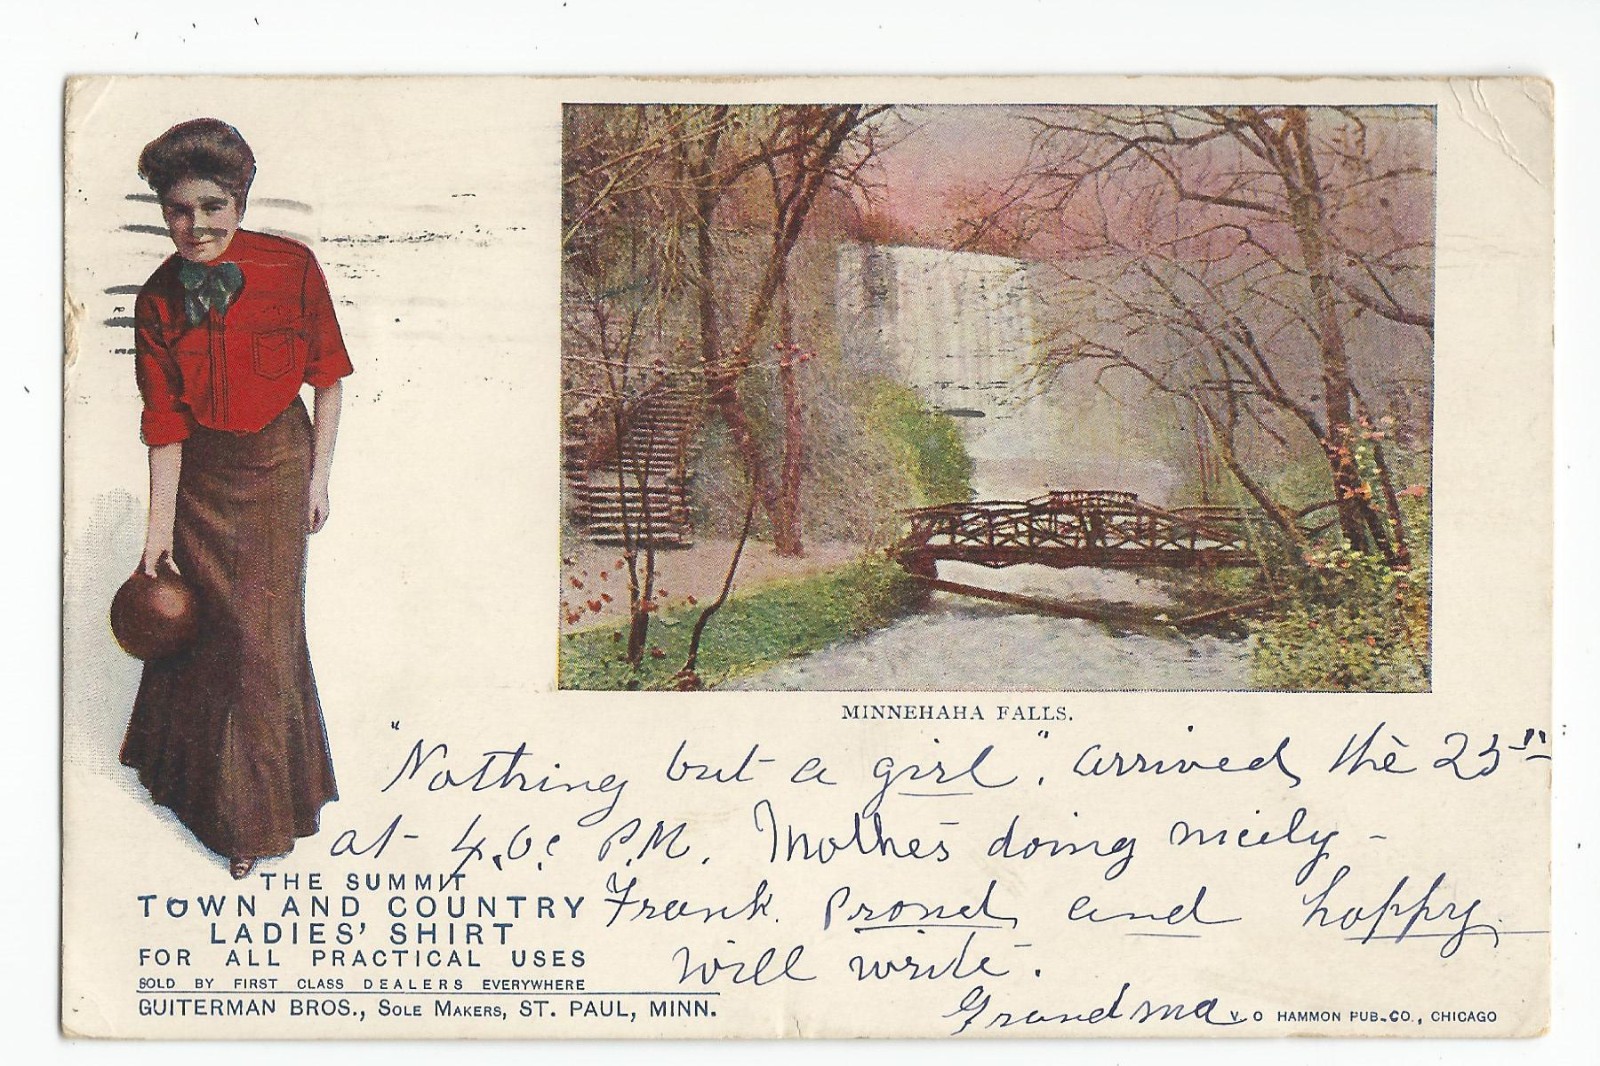 MINNEHAHA FALLS.
"Nothing but a girl". arrived the 25th
at 4.0c P.M. Mother doing nicely -
Frank. Proud and happy.
will write.
Grandma
THE SUMMIT
TOWN AND COUNTRY
LADIES' SHIRT
FOR ALL PRACTICAL USES
SOLD BY FIRST CLASS DEALERS EVERYWHERE
GUITERMAN BROS., SOLE MAKERS, ST. PAUL, MINN.
V. O HAMMON PUB. CO., CHICAGO